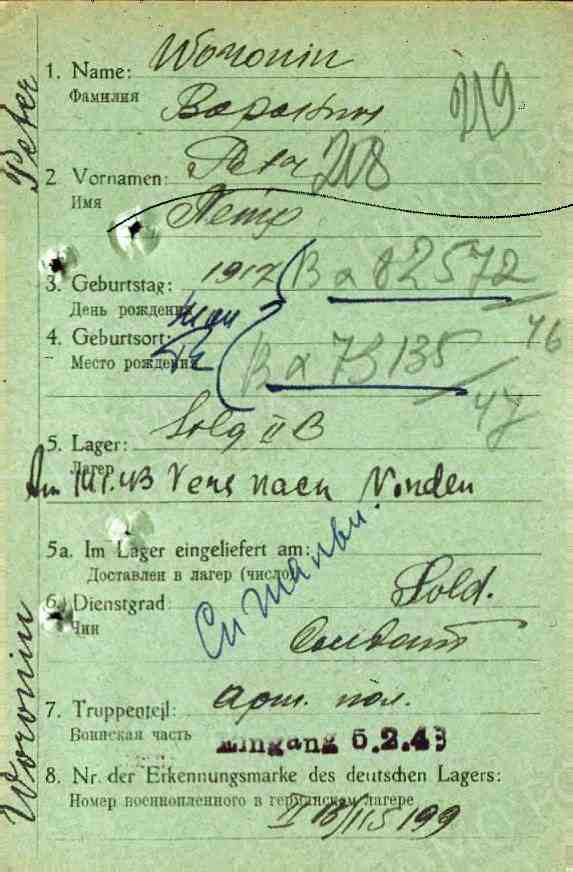 Peter
1. Name: Woronin
Фамилия
219
2 Vornamen: Peter 208
Имя Петр
3. Geburtstag: 1917 B α 82572
День рождения 46
4. Geburtsort:
Место рождения B α 73135
47
5. Lager: II B
Лагерь
nach Norden
5a. Im Lager eingeliefert am:
Доставлен в лагерь (число)
6. Dienstgrad: Sold.
Чин Солдат
7. Truppenteil: арт. пол.
Воинская часть Eingang 5.2.43
8. Nr. der Erkennungsmarke des deutschen Lagers:
Номер военнопленного в германском лагере
II B/115199
Woronin